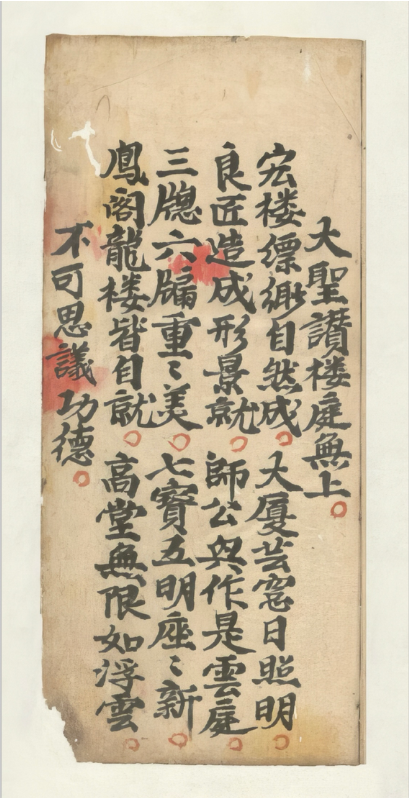 大聖讚楼庭無上。
宏楼縹緲自然成。大厦芸窓日照明。
良匠造成形景就。師公與作是雲庭。
三牕六牖重〻美。七寳五明座〻新。
鳳阁龍楼皆自就。高堂無限如浮雲。
不可思議功德。